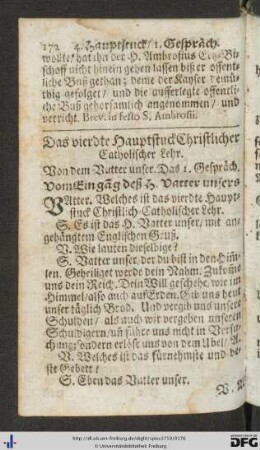 172 4. Hauptstuck/ 1. Gespräch.
wollte/ hat ihn der H. Ambrosius Ertz-Bi-
schoff nicht hinein gehen lassen biß er offent-
liche Buß gethan; deme der Kayser demüt-
hig gefolget/ und die aufferlegte offentli-
che Buß gehorsamlich angenommen/ und
verricht. Brev. in festo S. Ambrosii.
Das vierdte Hauptstuck Christlicher
Catholischer Lehr.
Von dem Vatter unser. Das 1. Gespräch.
Vom Eingäg deß H. Vatter unsers
VAtter. Welches ist das vierdte Haupt-
stuck Christlich-Catholischer Lehr.
S. Es ist das H. Vatter unser/ mit an-
gehängtem Englischen Gruß.
V. Wie lauten dieselbige?
S. Vatter unser/ der du bist in den Him̃-
len. Geheiliget werde dein Nahm. Zukom̃e
uns dein Reich. Dein Will geschehe/ wie im
Himmel/ also auch auf Erden. Gib uns heut
unser täglich Brod. Und vergib uns unsere
Schulden/ als auch wir vergeben unseren
Schuldigern/ uñ führe uns nicht in Versu-
chung/ sondern erlöse uns von dem Ubel/ A.
V. Welches ist das fürnehmste und
ste Gebett?
S. Eben das Vatter unser.
http://dl.ub.uni-freiburg.de/diglit/spiss1719/0176
© Universitätsbibliothek Freiburg
gefördert durch die
DFG